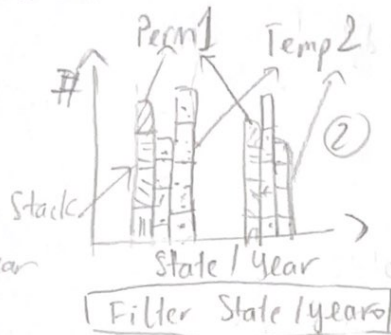 Perm1
Temp2
#
2
Stack
State / year
Filter State / years